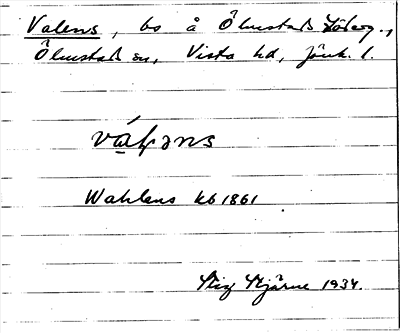 Valens, bs å Ölmstads Säteg.,
Ölmstads sn, Vista hd, Jönk. l.
vá̱ɫəns
Wahlens kb 1861
Stig Stjärne 1934.